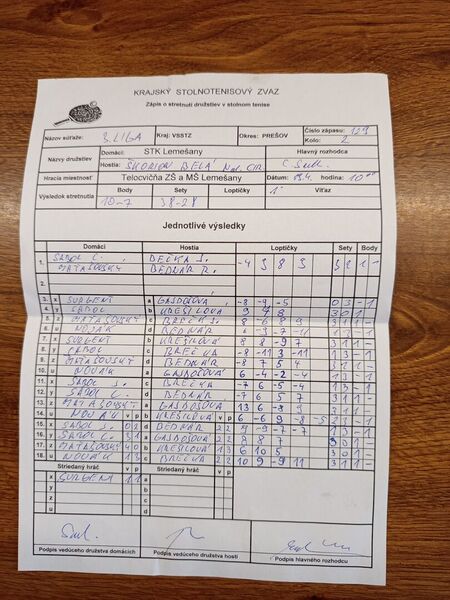 KRAJSKÝ STOLNOTENISOVÝ ZVÄZ
Zápis o stretnutí družstiev v stolnom tenise
Názov súťaže: 3. LIGA Kraj: VSSTZ Okres: PREŠOV Číslo zápasu: 129
Kolo: 2
Názvy družstiev Domáci: STK Lemešany Hlavný rozhodca
Hostia: ŠKORPION BELÁ
Hracia miestnosť Telocvičňa ZŠ a MŠ Lemešany Dátum: hodina: 10
Výsledok stretnutia Body Sety Loptičky Víťaz
10-7 38-28
Jednotlivé výsledky
Domáci Hostia Loptičky Sety Body
1. SABOL Ľ. BEČKA J. -4 3 8 3 3 1 1 -
MATAŠOVSKÝ BEDNÁR R.
2.
3. x SURGENT a GAJDOŠOVÁ -8 -9 -5 0 3 - 1
4. y SABOL b KREŠILOVÁ 9 7 8 3 0 1 -
5. z MATAŠOVSKÝ c BREČKA 8 6 8 9 3 1 1 -
6. u NOVÁK d BEDNÁR 1 3 - 1
7. x SURGENT b KREŠILOVÁ 8 8 -9 7 3 1 1 -
8. y SABOL c BREČKA -8 -11 3 -11 1 3 - 1
9. z MATAŠOVSKÝ d BEDNÁR -8 7 5 4 3 1 1 -
10. u NOVÁK a GAJDOŠOVÁ 6 -4 -2 -4 1 3 - 1
11. x SABOL c BREČKA -7 6 5 -4
12. y SABOL Ľ. d BEDNÁR -7 6 5 4 3 1 1 -
13. z MATAŠOVSKÝ a GAJDOŠOVÁ 13 6 -8 9 3 1 1 -
14. u NOVÁK v p b KREŠILOVÁ v p 6 -6 9 -8 -5
15. x SABOL 0 2 d BEDNÁR 2 2 9 -9 -7 -7 1 3 - 1
16. y SABOL Ľ. 3 1 a GAJDOŠOVÁ 2 2 8 8 7 3 0 1 -
17. z MATAŠOVSKÝ 4 0 b KREŠILOVÁ 1 3 6 10 5 3 0 1 -
18. u NOVÁK 1 3 c BREČKA 2 2 10 9 -9 11 3 1 1 -
Striedaný hráč v p Striedaný hráč v p
x SURGENT 1 1 a
y b
z c
u d
Podpis vedúceho družstva domácich Podpis vedúceho družstva hostí Podpis hlavného rozhodcu